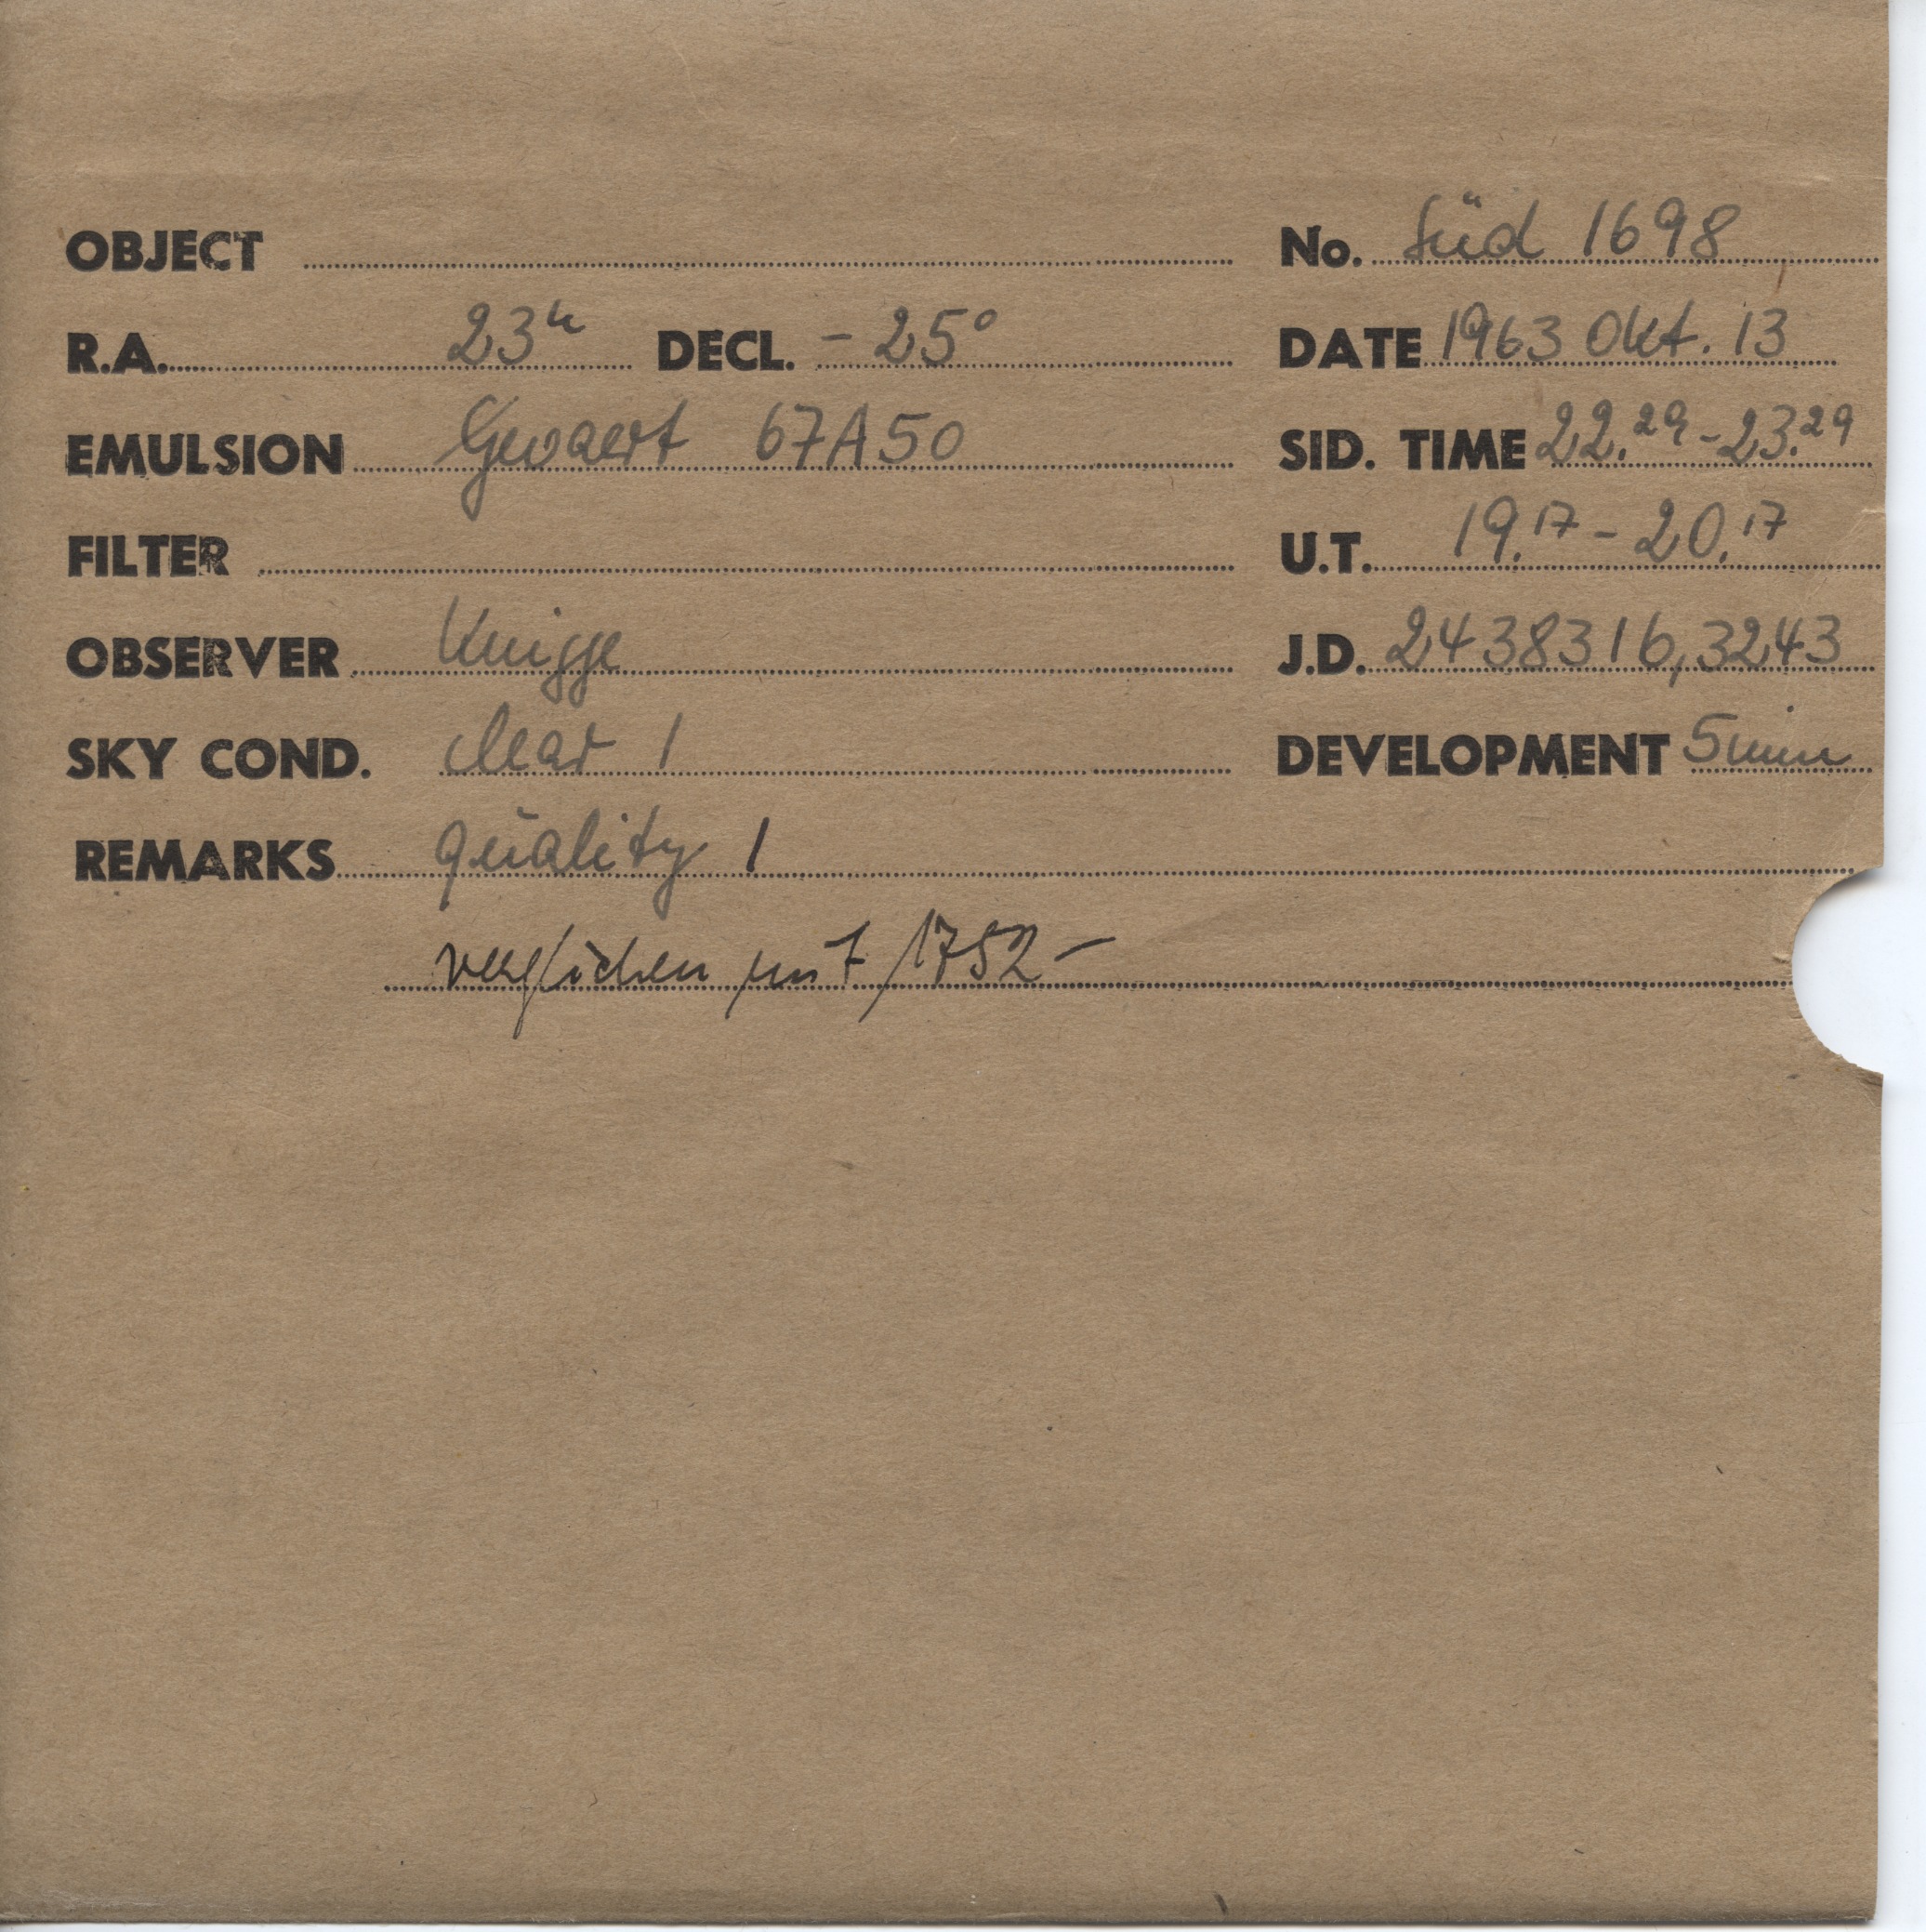 OBJECT No. Süd 1698
R.A. 23h DECL. -25° DATE 1963 Okt. 13
EMULSION Gevaert 67A50 SID. TIME 22.29-23.29
FILTER U.T. 19.17-20.17
OBSERVER Knigge J.D. 2438316,3243
SKY COND. clear 1 DEVELOPMENT 5 min
REMARKS quality 1
verglichen mit 1752-